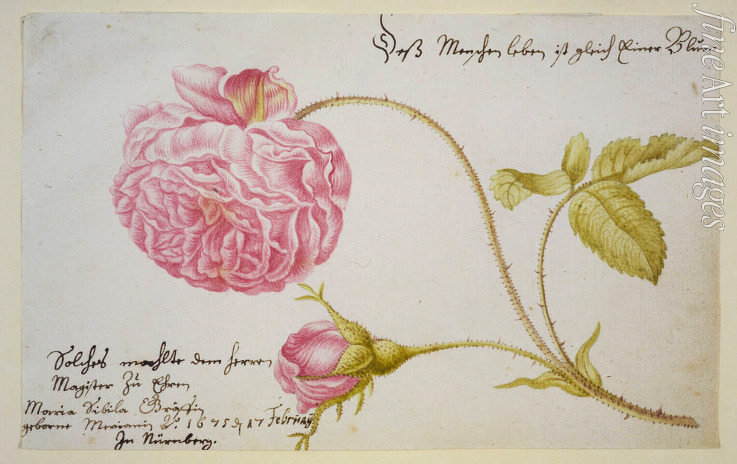 Deß Menschen leben ist gleich Einer Blum
Solches mahlte dem Herren
Magister Zu Ehren
Maria Sibila Gräffin
geborne Merianin Aº. 1675 d 17 Februarÿ
In Nürnberg.
fine art images